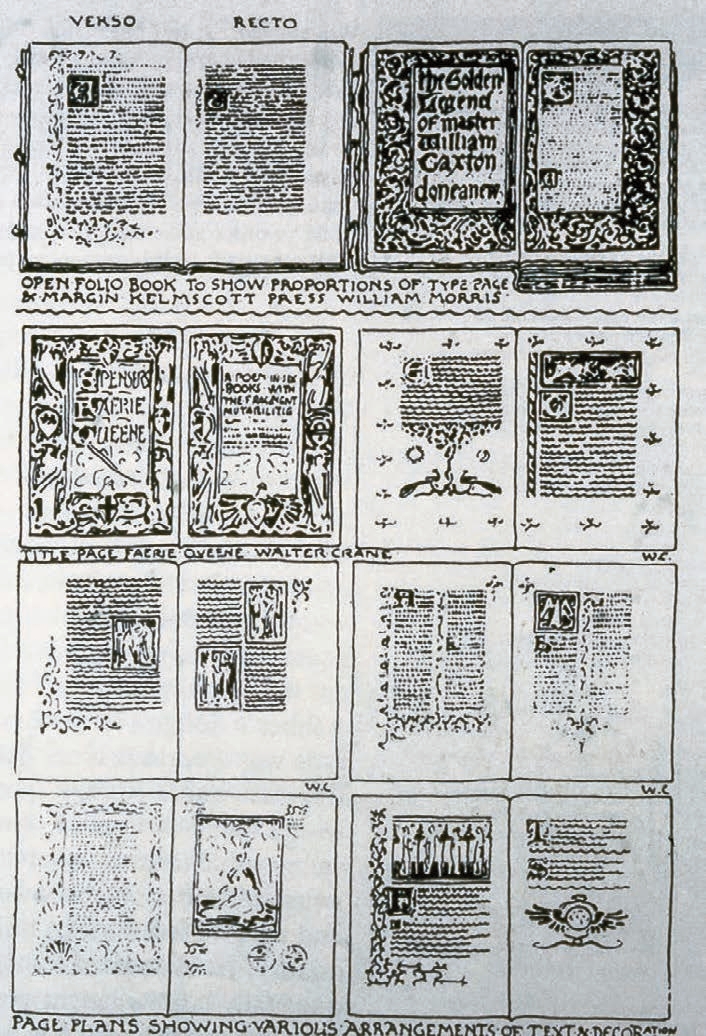 VERSO RECTO
the Golden
Legend
of master
William
Caxton
done anew.
OPEN FOLIO BOOK TO SHOW PROPORTIONS OF TYPE PAGE
& MARGIN KELMSCOTT PRESS WILLIAM MORRIS.
SPENSERS
FAERIE
QUEENE
A POEM IN SIX
BOOKS WITH
THE FRAGMENT
MUTABILITIE
TITLE PAGE FAERIE QUEENE WALTER CRANE
W.C.
W.C
W.C
PAGE PLANS SHOWING VARIOUS ARRANGEMENTS OF TEXT & DECORATION